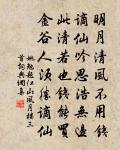 明月清風不用錢
謫仙吟思浩無邊
此清若也錢能買
金谷人須謫仙
姚勉題江山風月樓三
首詞典網集